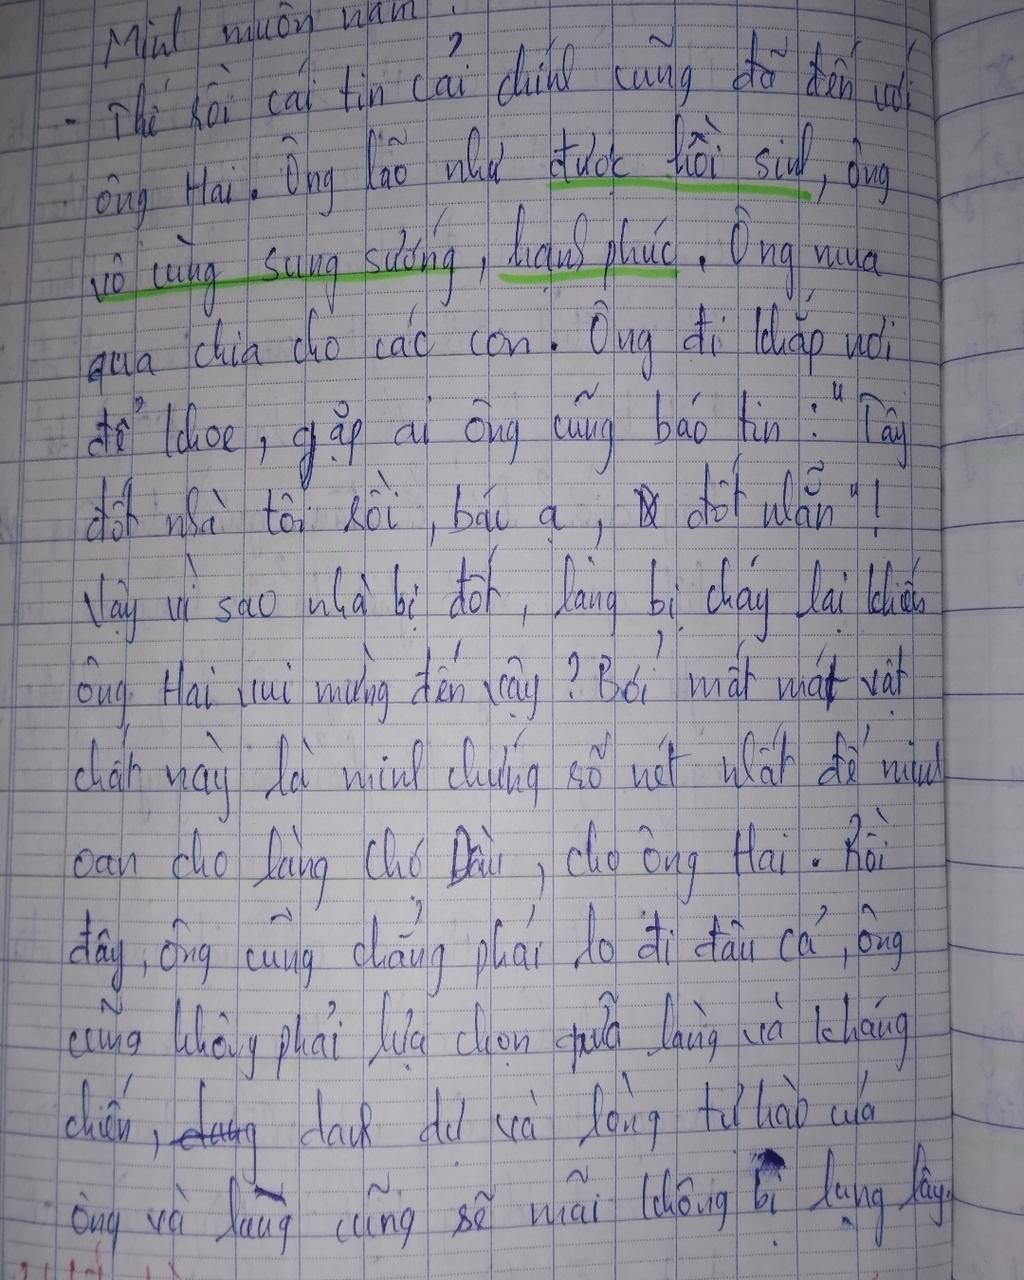 Minh muôn năm.
- Thế rồi cái tin cải chính cũng đã đến với
ông Hai. Ông lão như được hồi sinh, ông
vô cùng sung sướng, hạnh phúc. Ông mua
quà chia cho các con. Ông đi khắp nơi
để khoe, gặp ai ông cũng báo tin: "Tây
đốt nhà tôi rồi, bác ạ, đốt nhẵn"!
Vậy vì sao nhà bị đốt, làng bị cháy lại khiến
ông Hai vui mừng đến vậy? Bởi mất mát vật
chất này là minh chứng rõ nét nhất để minh
oan cho làng Chợ Dầu, cho ông Hai. Rồi
đây, ông cũng chẳng phải lo đi đâu cả, ông
cũng không phải lựa chọn giữa làng và kháng
chiến, danh dự và lòng tự hào của
ông và làng cũng sẽ mãi không bị lung lay.